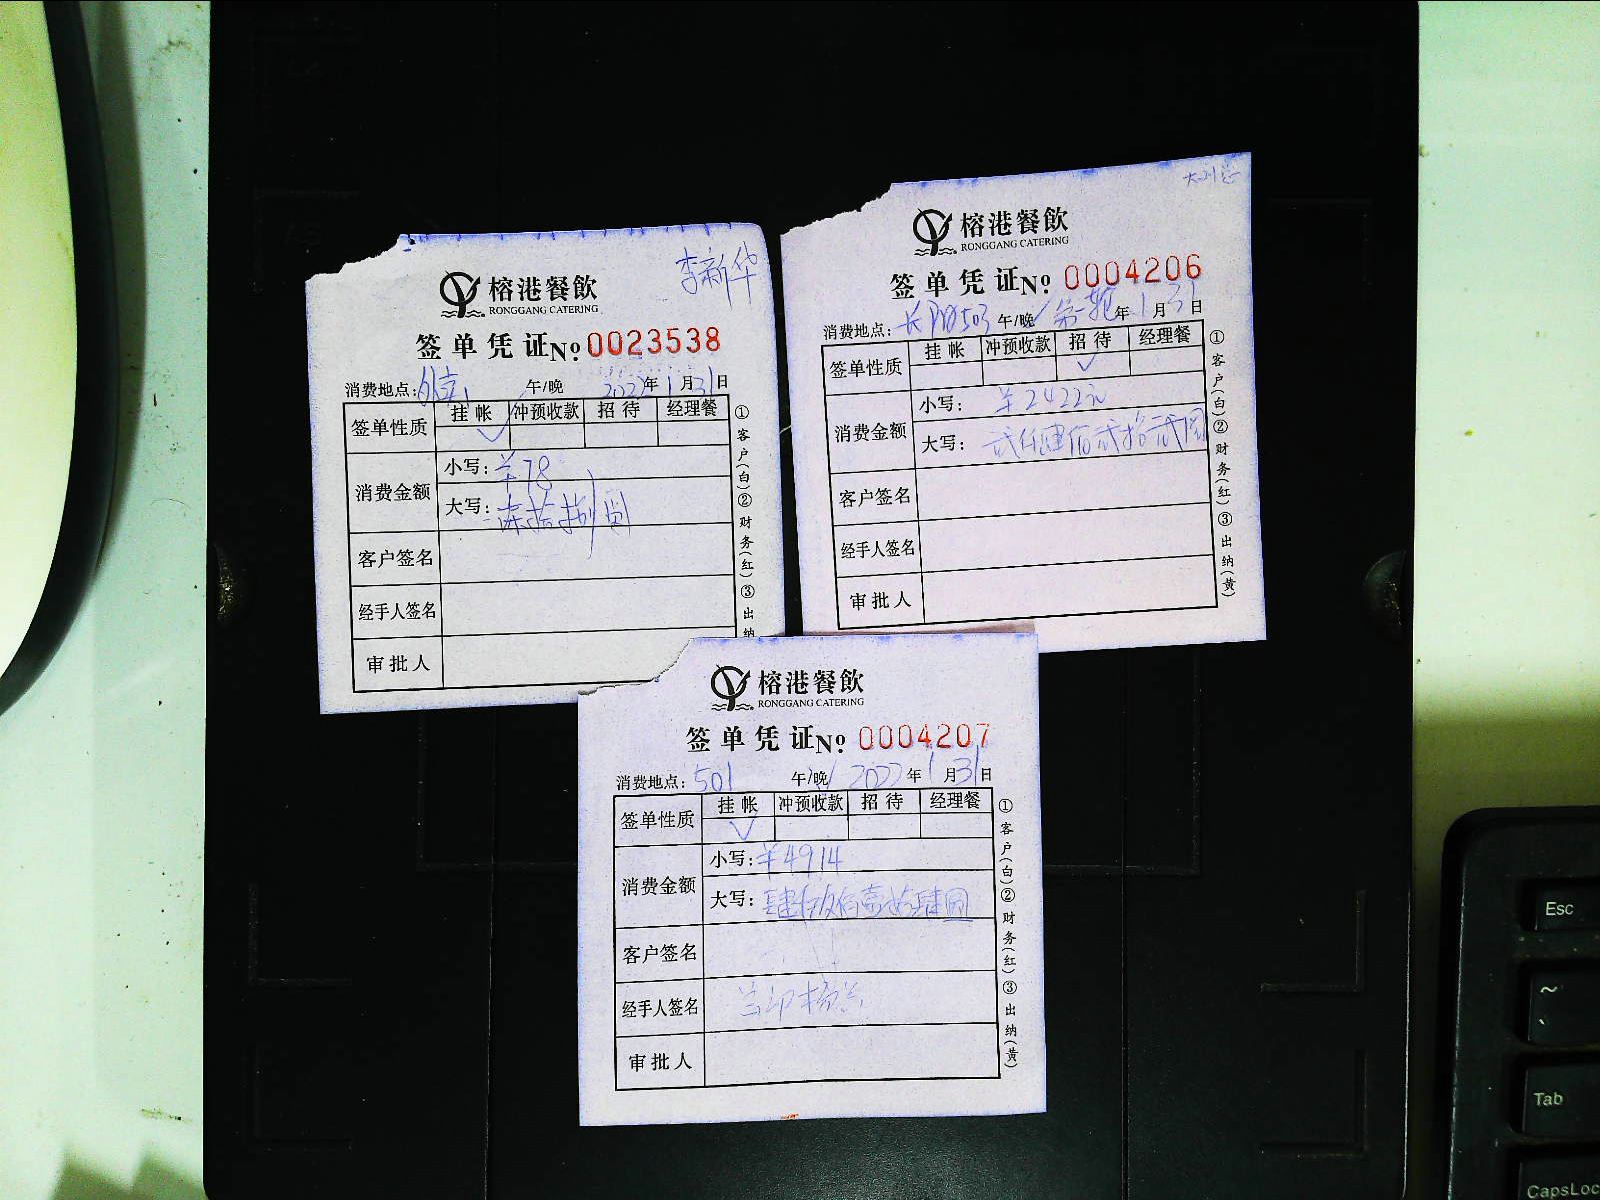 李新华
榕港餐飲
RONGGANG CATERING
签单凭证 No 0023538
消费地点: 午/晚 2022年1月31日
签单性质 挂帐 冲预收款 招待 经理餐
✓
消费金额 小写: ¥78
大写: 柒拾捌圆
客户签名
经手人签名
审批人
①客户(白)②财务(红)③出纳
大刘总
榕港餐飲
RONGGANG CATERING
签单凭证 No 0004206
消费地点: 503 午/晚 年1月31日
签单性质 挂帐 冲预收款 招待 经理餐
✓
消费金额 小写: ¥2422元
大写: 贰仟肆佰贰拾贰圆
客户签名
经手人签名
审批人
①客户(白)②财务(红)③出纳(黄)
榕港餐飲
RONGGANG CATERING
签单凭证 No 0004207
消费地点: 501 午/晚 2022年1月31日
签单性质 挂帐 冲预收款 招待 经理餐
✓
消费金额 小写: ¥4914
大写: 肆仟玖佰壹拾肆圆
客户签名
经手人签名
审批人
①客户(白)②财务(红)③出纳(黄)
Esc
~
、
Tab
CapsLoc